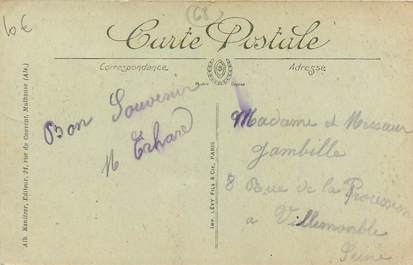 (68)
10€
Carte Postale
Correspondance
Adresse
Bon Souvenir
N Erhard
Madame et Messieur
Jambille
8 Rue de la Procession
a Villemomble
Seine
Alb. Kanitzer, Editeur, 21, rue du Couvent, Mulhouse (Als.)
Imp. LÉVY FILS & Cie, PARIS